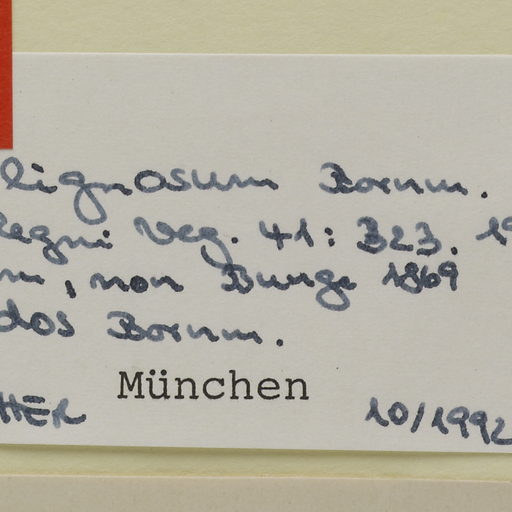 lignosum Bornm.
Regni Veg. 41: 323. 19
m, non Bunge 1869
dos Bornm.
München
HER 10/1992